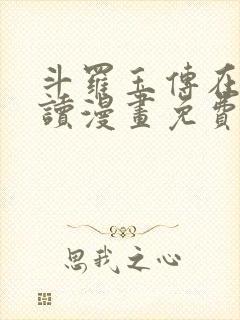 斗羅玉傳在
讀漫畫免費
思我之心